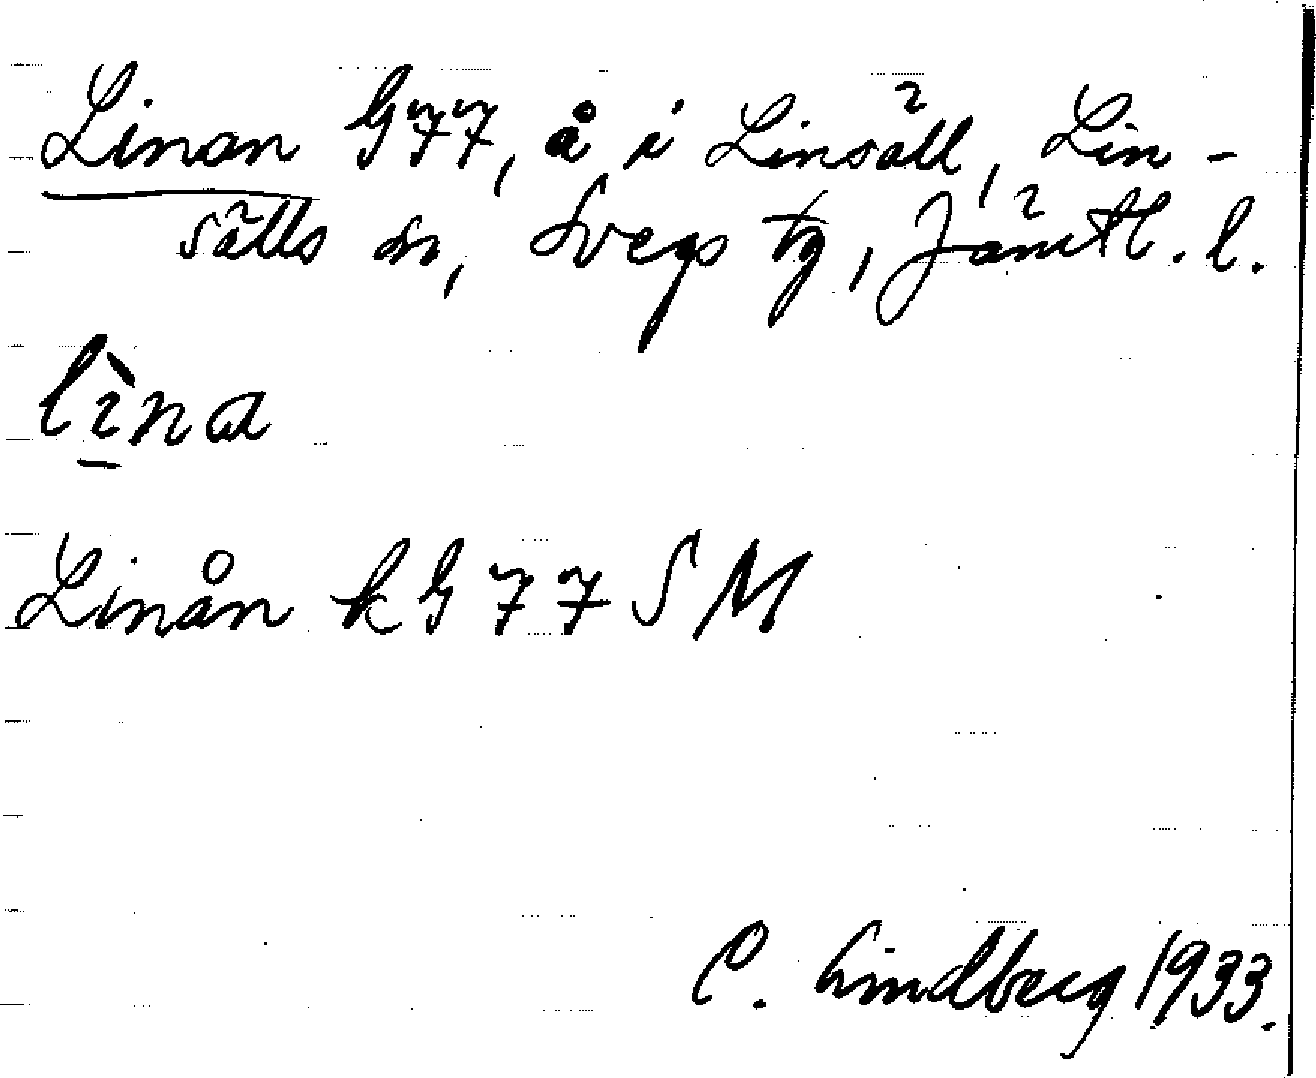 Linan G77, å i Linsäll, Lin-
sälls sn, Svegs tg, Jämtl. l.
lìna
Linån kG77SM
C. Lindberg 1933.